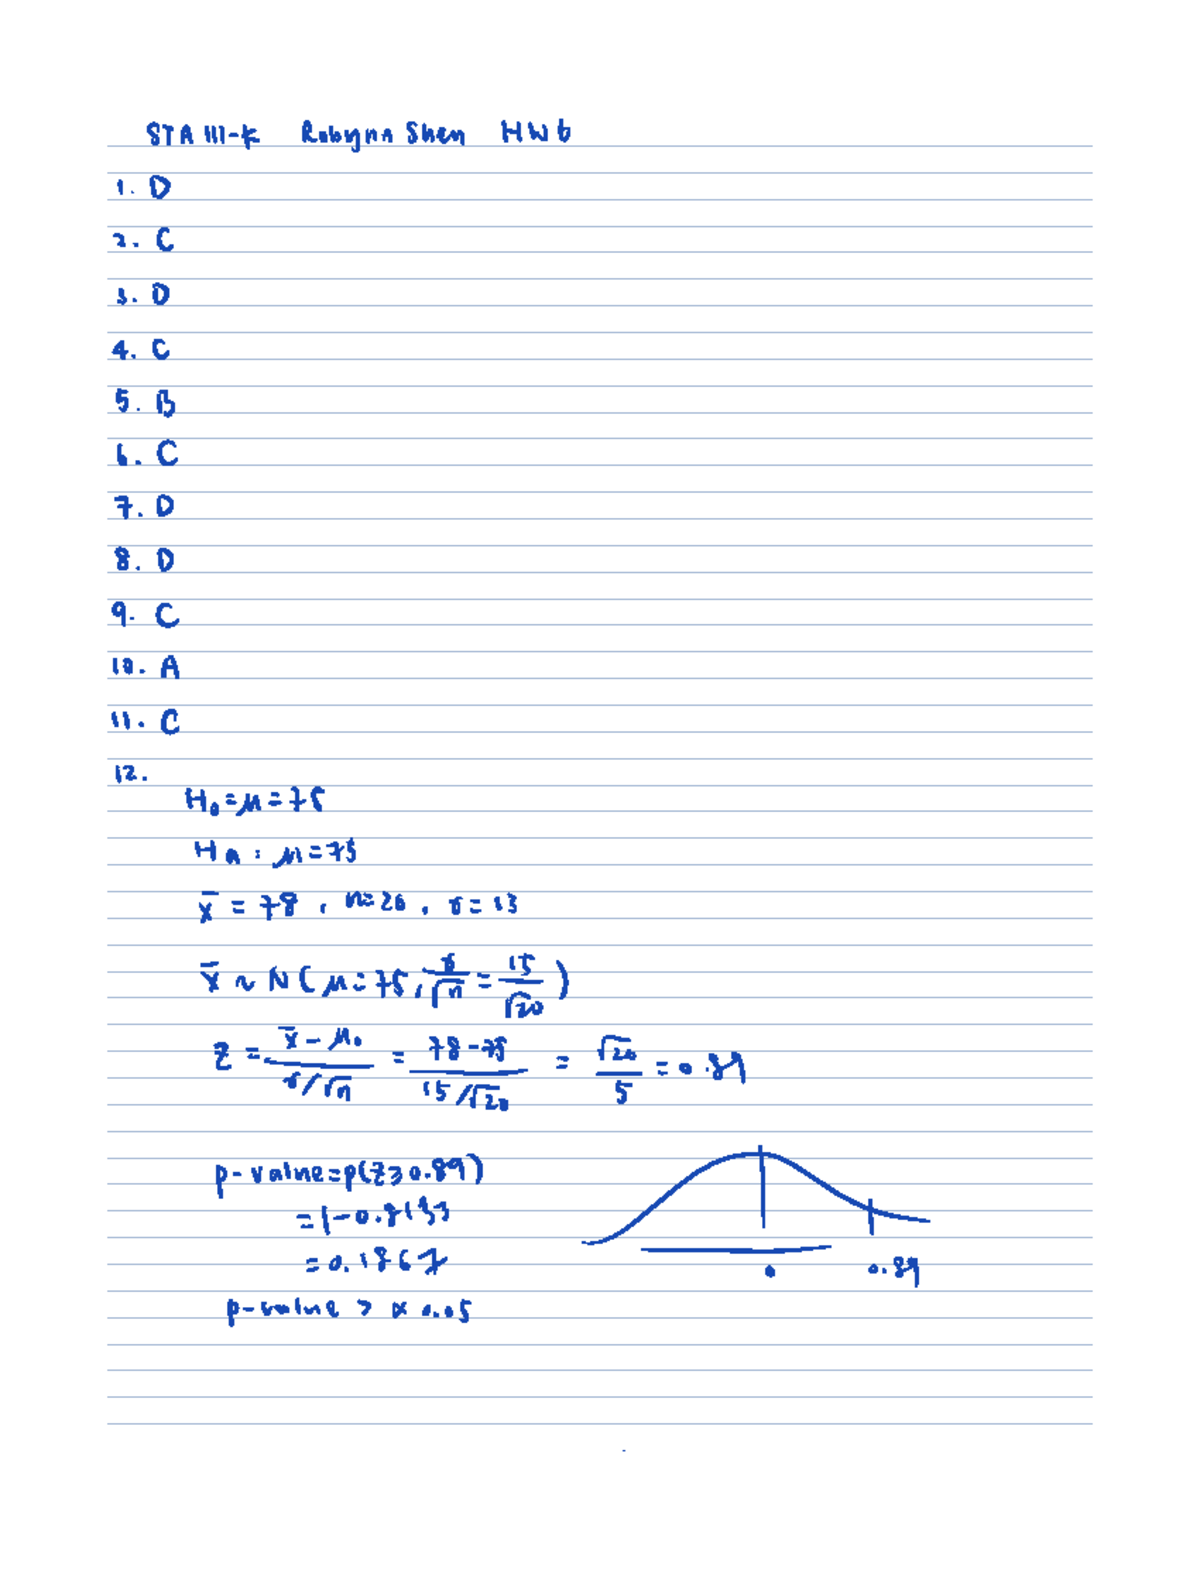 STA 111-K Robynn Shen HW6
1. D
2. C
3. D
4. C
5. B
6. C
7. D
8. D
9. C
10. A
11. C
12.
H₀ = μ = 75
Ha : μ = 75
x̄ = 78 , n = 20 , σ = 15
x̄ ~ N ( μ = 75 , σ/√n = 15/√20 )
Z = (x̄ - μ₀)/(σ/√n) = (78 - 75)/(15/√20) = √20/5 = 0.89
p-value = p(Z ≥ 0.89)
= 1 - 0.8133
= 0.1867
0 0.89
p-value > α 0.05